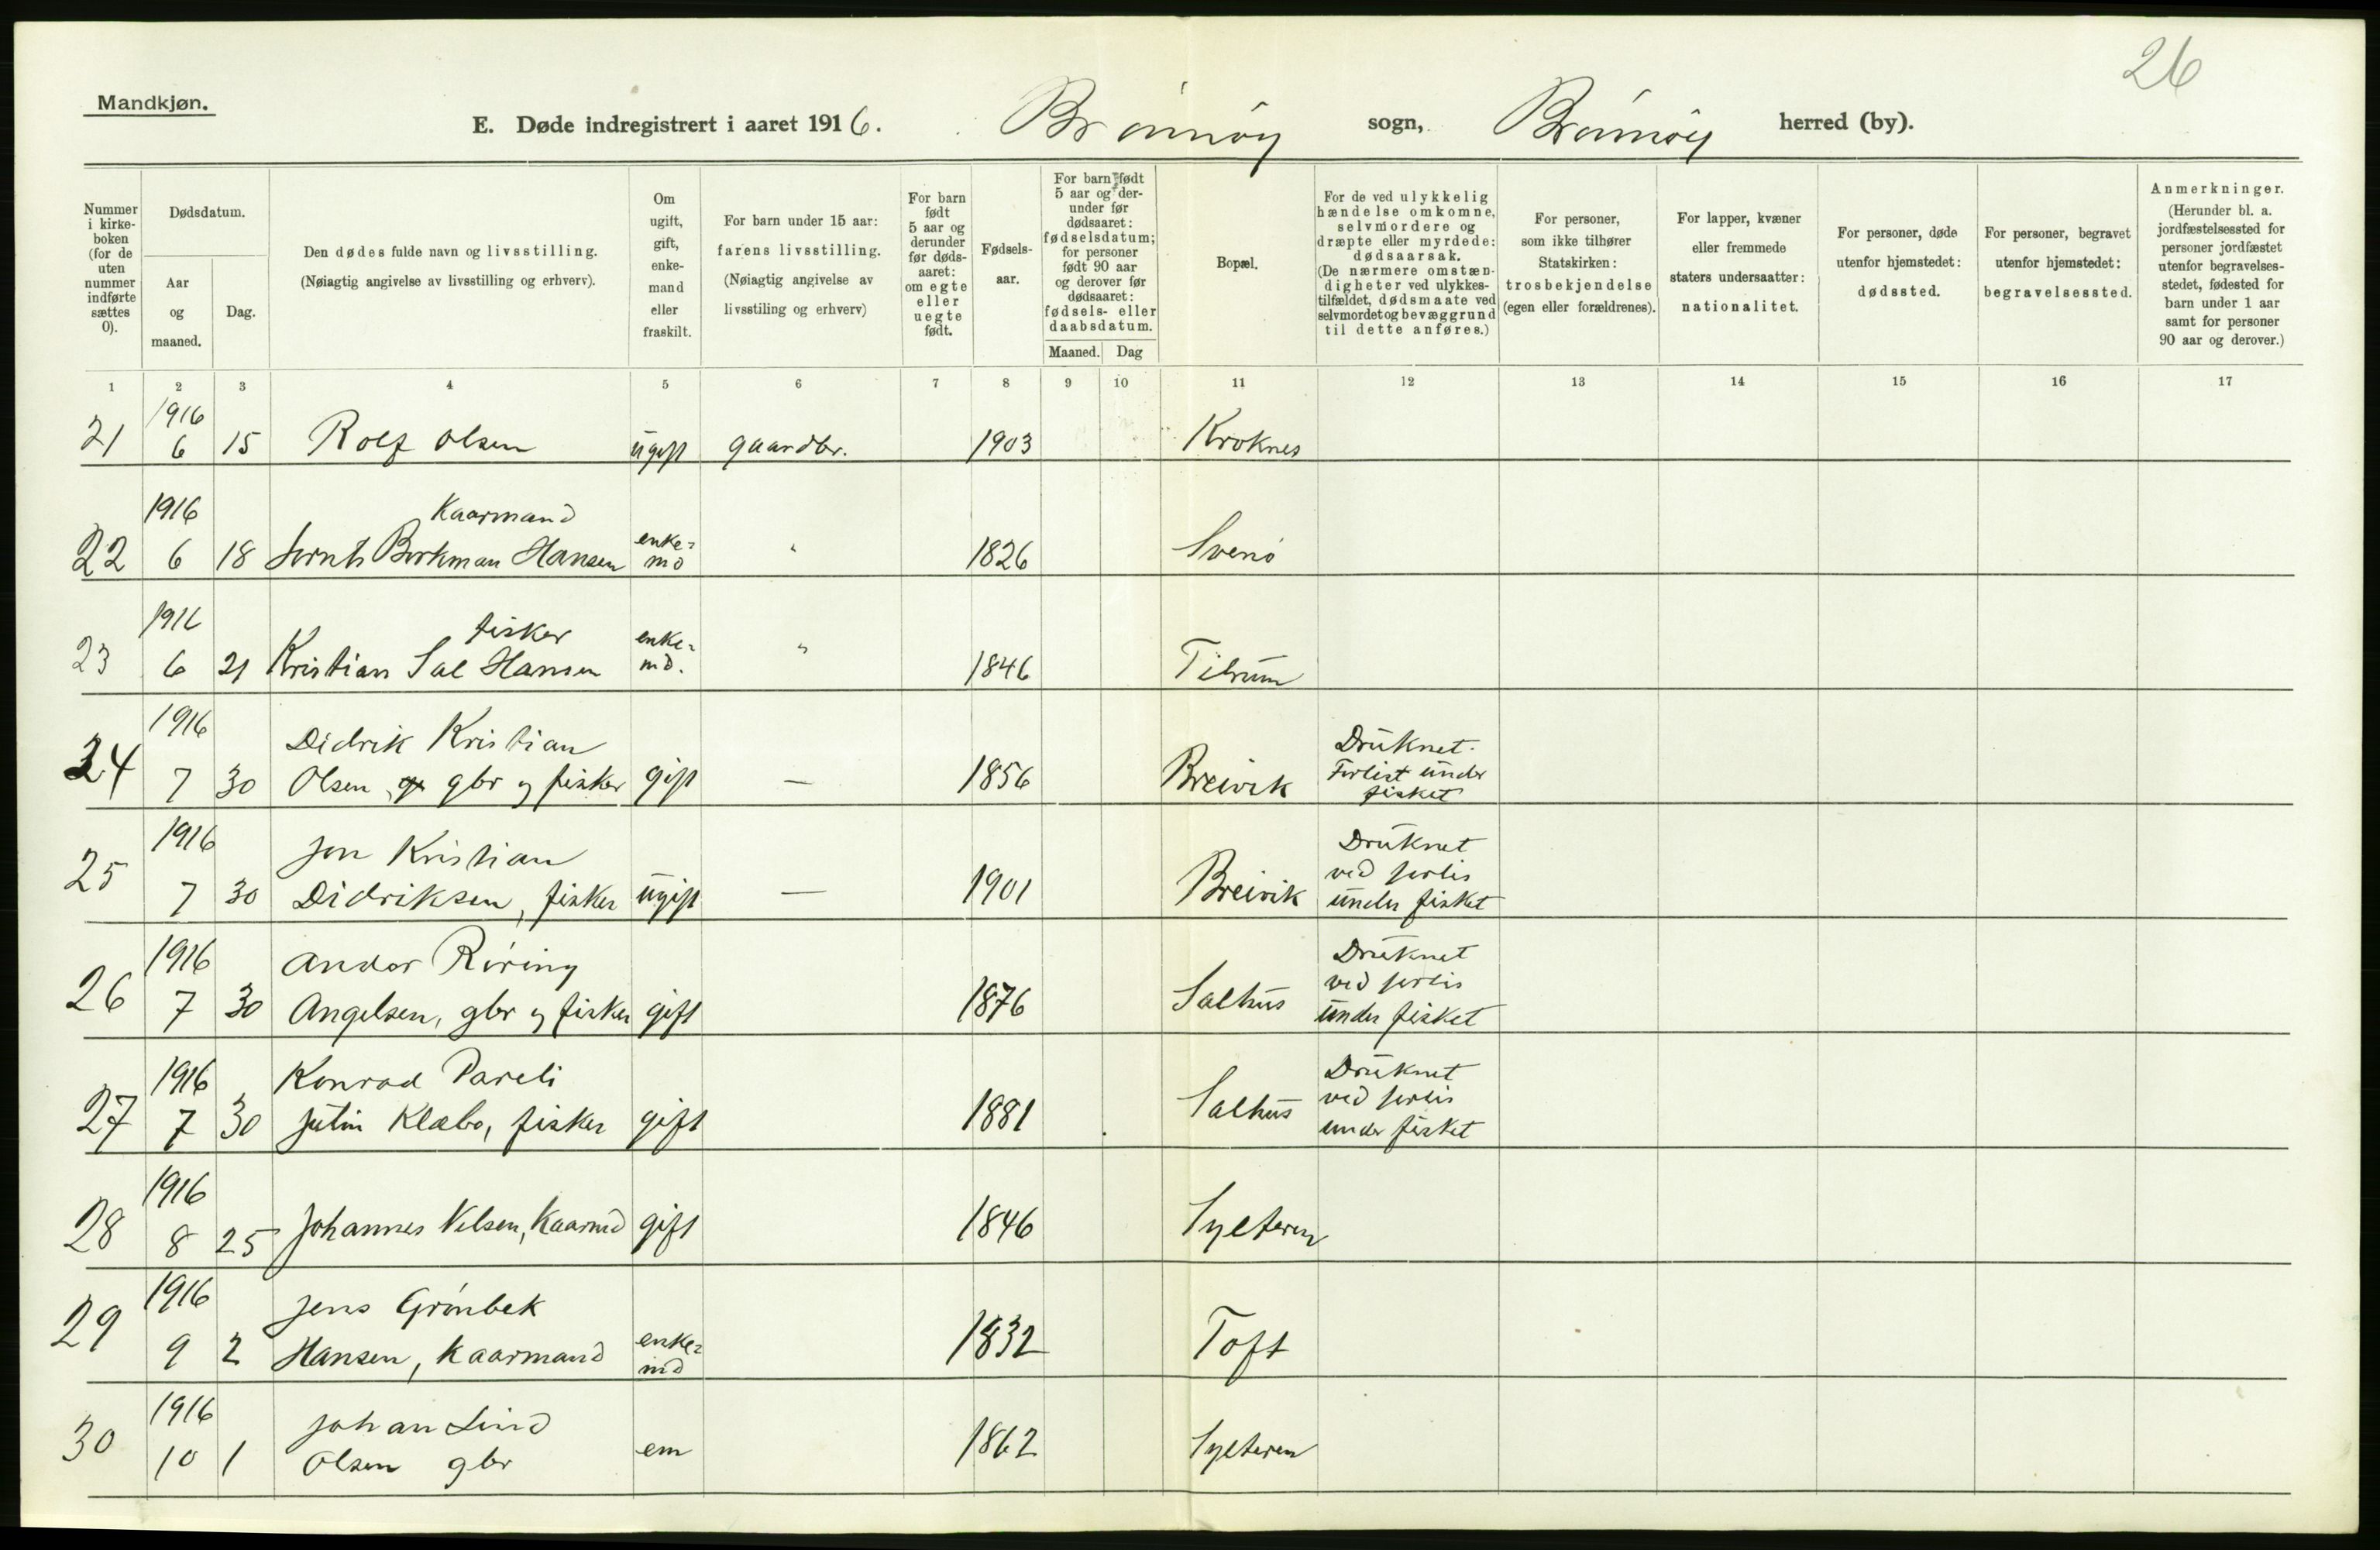 26
Mandkjøn.
E. Døde indregistrert i aaret 1916. Brønnøy sogn, Brønnøy herred (by).
Nummer i kirke- boken (for de uten nummer indførte sættes 0).
Dødsdatum.
Aar og maaned.
Dag.
Den dødes fulde navn og livsstilling.
(Nøiagtig angivelse av livsstilling og erhverv).
Om ugift, gift, enke- mand eller fraskilt.
For barn under 15 aar:
farens livsstilling.
(Nøiagtig angivelse av
livsstiling og erhverv)
For barn født 5 aar og derunder før døds- aaret: om egte eller uegte født.
Fødsels- aar.
For barn født 5 aar og der- under før dødsaaret: fødselsdatum; for personer født 90 aar og derover før dødsaaret: fødsels- eller daabsdatum.
Maaned. Dag
Bopæl.
For de ved ulykkelig hændelse omkomne, selvmordere og dræpte eller myrdede: dødsaarsak.
(De nærmere omstæn- digheter ved ulykkes- tilfældet, dødsmaate ved selvmordet og bevæggrund til dette anføres.)
For personer, som ikke tilhører Statskirken: trosbekjendelse (egen eller forældrenes).
For lapper, kvæner eller fremmede staters undersaatter: nationalitet.
For personer, døde utenfor hjemstedet: dødssted.
For personer, begravet utenfor hjemstedet: begravelsessted.
Anmerkninger.
(Herunder bl. a. jordfæstelsessted for personer jordfæstet utenfor begravelses- stedet, fødested for barn under 1 aar samt for personer 90 aar og derover.)
1 2 3 4 5 6 7 8 9 10 11 12 13 14 15 16 17
1916
21 6 15 Rolf Olsen ugift gaardbr. 1903 Kroknes
1916 Kaarmand
22 6 18 Borkman Hansen enke= md " 1826 Svenø
1916 fisker
23 6 21 Kristian Sal Hansen enke= md. " 1846 Tilrum
1916 Didrik Kristian Druknet.
24 7 30 Olsen, gbr og fisker gift — 1856 Breivik Forlist under
fisket
1916 Jon Kristian Druknet
25 7 30 Didriksen, fisker ugift — 1901 Breivik ved forlis
under fisket
1916 Andor Røring Druknet
26 7 30 Angelsen, gbr og fisker gift 1876 Salhus ved forlis
under fisket
1916 Konrad Pareli Druknet
27 7 30 Julin Klæbo, fisker gift 1881 Salhus ved forlis
under fisket
1916
28 8 25 Johannes Nilsen, Kaarmd gift 1846 Sylteren
1916 Jens Grønbek
29 9 2 Hansen, Kaarmand enke= md 1832 Toft
1916 Johan Lind
30 10 1 Olsen gbr em 1862 Sylteren